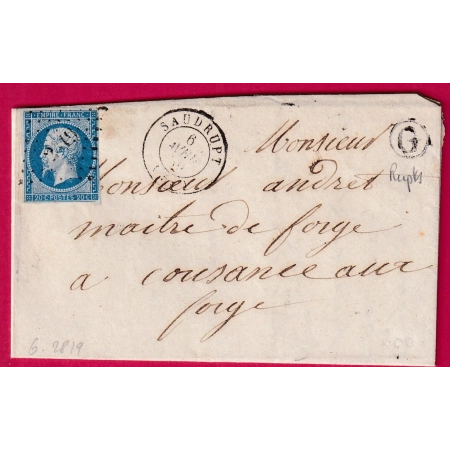 EMPIRE FRANC.
20 C. POSTES 20 C.
SAUDRUPT
6
G
Rupt
Monsieur
Monsieur andret
maitre de forge
a cousance aux
forge
6-2819